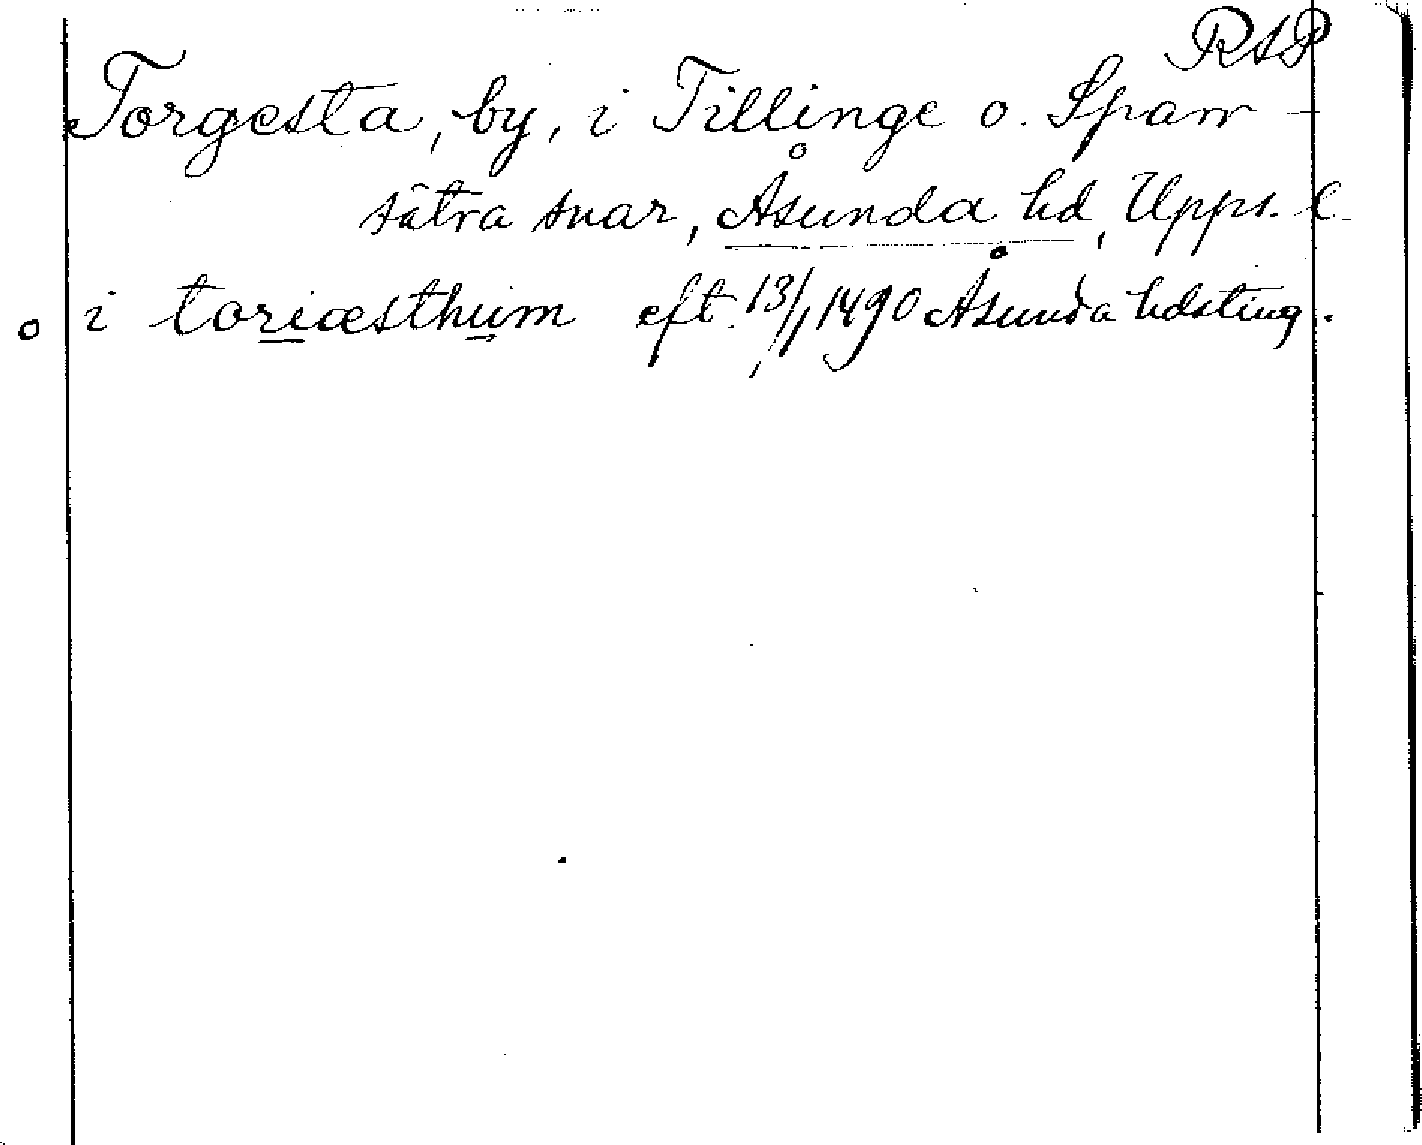 RAP
Torgesta, by, i Tillinge o. Sparr-
sätra snar, Åsunda hd, Upps. l.
o i toriæsthum eft. 13/1 1490 Åsunda hdsting.